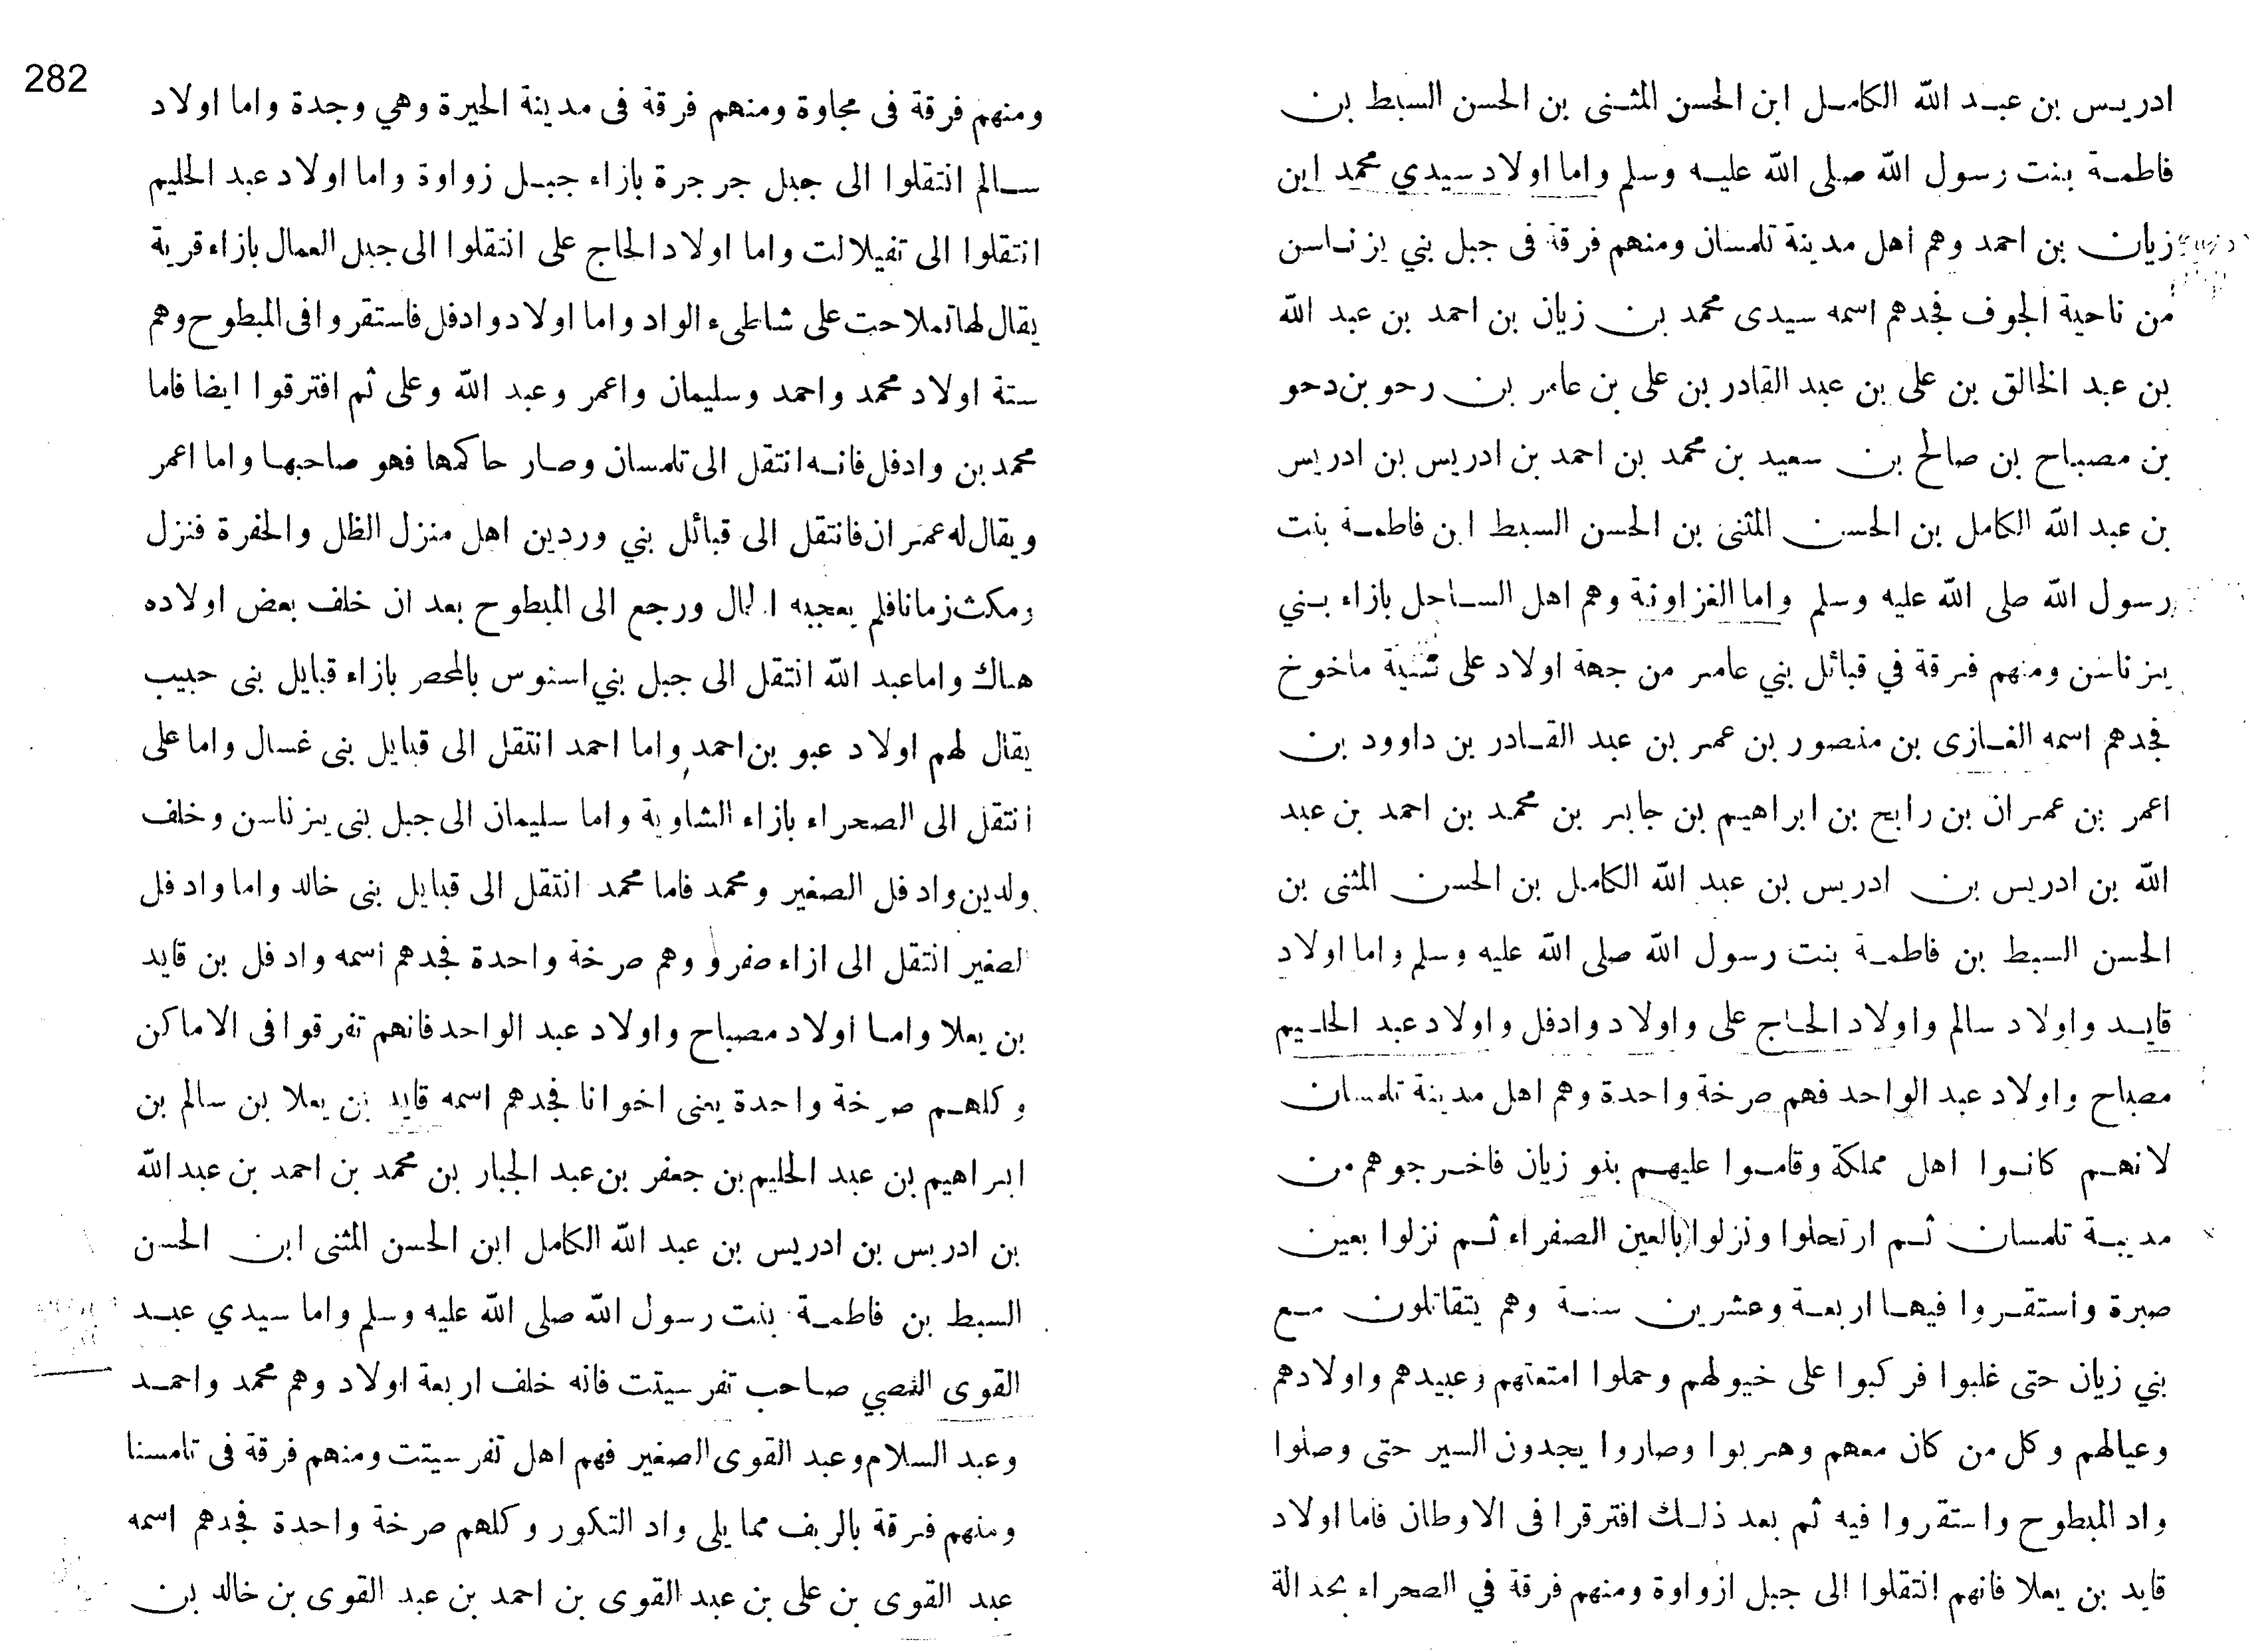 282
ادريس بن عبد الله الكامل ابن الحسن المثنى بن الحسن السبط بن
فاطمة بنت رسول الله صلى الله عليه وسلم واما اولاد سيدي محمد ابن
زيان بن احمد وهم اهل مدينة تلمسان ومنهم فرقة فى جبل بني يزناسن
من ناحية الجوف فجدهم اسمه سيدى محمد بن زيان بن احمد بن عبد الله
بن عبد الخالق بن على بن عبد القادر بن على بن عامر بن رحو بن دحو
بن مصباح بن صالح بن سعيد بن محمد بن احمد بن ادريس بن ادريس
بن عبد الله الكامل بن الحسن المثنى بن الحسن السبط ابن فاطمة بنت
رسول الله صلى الله عليه وسلم واما الغزاونة وهم اهل الساحل بازاء بني
يزناسن ومنهم فرقة في قبائل بني عامر من جهة اولاد على ثنية ماخوخ
فجدهم اسمه الغازى بن منصور بن عمر بن عبد القادر بن داوود بن
اعمر بن عمران بن رابح بن ابراهيم بن جابر بن محمد بن احمد بن عبد
الله بن ادريس بن ادريس بن عبد الله الكامل بن الحسن المثنى بن
الحسن السبط بن فاطمة بنت رسول الله صلى الله عليه وسلم واما اولاد
قايد واولاد سالم واولاد الحاج على واولاد وادفل واولاد عبد الحليم
مصباح واولاد عبد الواحد فهم صرخة واحدة وهم اهل مدينة تلمسان
لانهم كانوا اهل مملكة وقاموا عليهم بنو زيان فاخرجوهم من
مدينة تلمسان ثم ارتحلوا ونزلوا بالعين الصفراء ثم نزلوا بعين
صبرة واستقروا فيها اربعة وعشرين سنة وهم يتقاتلون مع
بني زيان حتى غلبوا فركبوا على خيولهم وحملوا امتعتهم وعبيدهم واولادهم
وعيالهم وكل من كان معهم وهربوا وصاروا يجدون السير حتى وصلوا
واد المبطوح واستقروا فيه ثم بعد ذلك افترقرا فى الاوطان فاما اولاد
قايد بن يعلا فانهم انتقلوا الى جبل ازواوة ومنهم فرقة في الصحراء بحدالة
ومنهم فرقة فى مجاوة ومنهم فرقة فى مدينة الحيرة وهي وجدة واما اولاد
سالم انتقلوا الى جبل جرجرة بازاء جبل زواوة واما اولاد عبد الحليم
انتقلوا الى تفيلالت واما اولاد الحاج على انتقلوا الى جبل العمال بازاء قرية
يقال لها تملاحت على شاطىء الواد واما اولاد وادفل فاستقروا فى المبطوح وهم
ستة اولاد محمد واحمد وسليمان واعمر وعبد الله وعلى ثم افترقوا ايضا فاما
محمد بن وادفل فانه انتقل الى تلمسان وصار حاكمها فهو صاحبها واما اعمر
ويقال له عمران فانتقل الى قبائل بني وردين اهل منزل الظل والحفرة فنزل
ومكث زمانا فلم يعجبه الحال ورجع الى المبطوح بعد ان خلف بعض اولاده
هناك واما عبد الله انتقل الى جبل بني اسنوس بالمحصر بازاء قبايل بنى حبيب
يقال لهم اولاد عبو بن احمد واما احمد انتقل الى قبايل بنى غسال واما على
انتقل الى الصحراء بازاء الشاوية واما سليمان الى جبل بنى يزناسن وخلف
ولدين وادفل الصغير ومحمد فاما محمد انتقل الى قبايل بنى خالد واما وادفل
الصغير انتقل الى ازاء صفرو وهم صرخة واحدة فجدهم اسمه وادفل بن قايد
بن يعلا واما اولاد مصباح واولاد عبد الواحد فانهم تفرقوا فى الاماكن
وكلهم صرخة واحدة يعنى اخوانا فجدهم اسمه قايد بن يعلا بن سالم بن
ابراهيم بن عبد الحليم بن جعفر بن عبد الجبار بن محمد بن احمد بن عبد الله
بن ادريس بن ادريس بن عبد الله الكامل ابن الحسن المثنى ابن الحسن
السبط بن فاطمة بنت رسول الله صلى الله عليه وسلم واما سيدي عبد
القوى الخصبي صاحب تفرسيتت فانه خلف اربعة اولاد وهم محمد واحمد
وعبد السلام وعبد القوى الصغير فهم اهل تفرسيتت ومنهم فرقة فى تامسنا
ومنهم فرقة بالريف مما يلى واد النكور وكلهم صرخة واحدة فجدهم اسمه
عبد القوى بن على بن عبد القوى بن احمد بن عبد القوى بن خالد بن